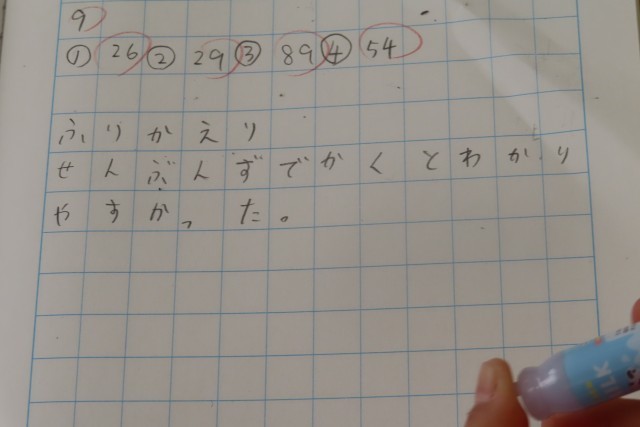 9
① 26 ② 29 ③ 89 ④ 54
ふりかえり
せんぶんずでかくとわかり
やすかった。
LK